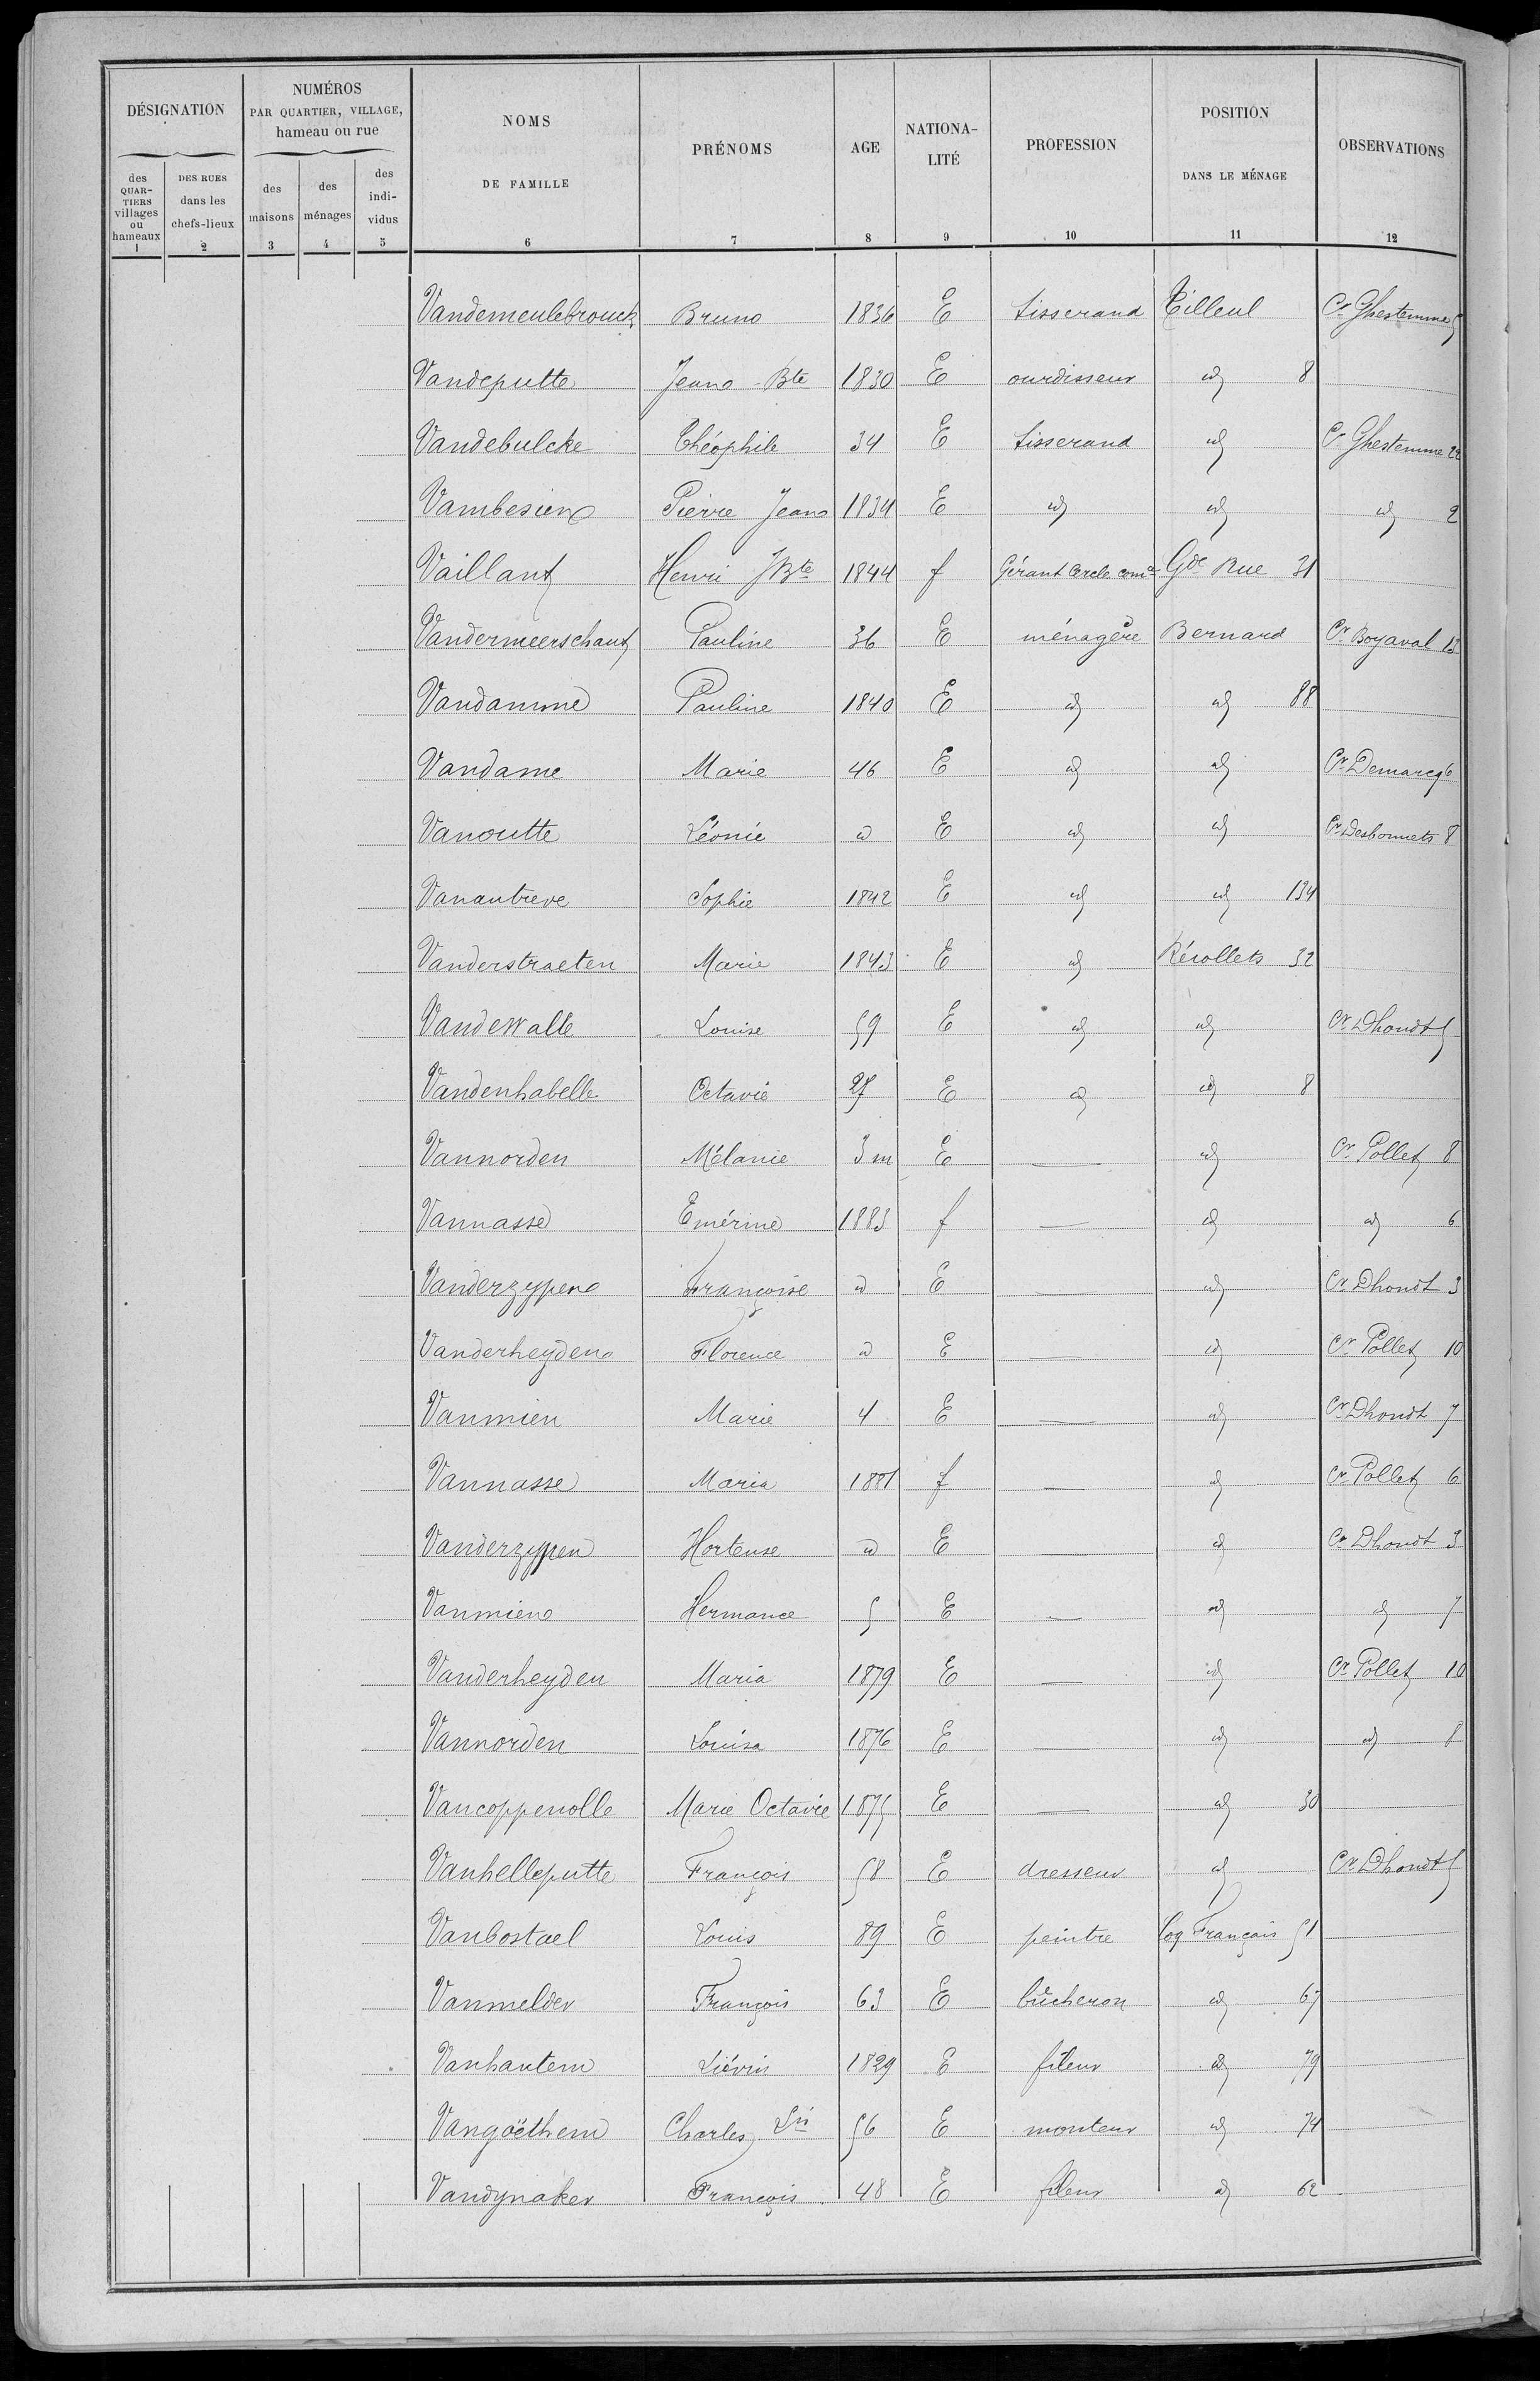 DÉSIGNATION NUMÉROS PAR QUARTIER, VILLAGE, hameau ou rue NOMS DE FAMILLE PRÉNOMS AGE NATIONA-LITÉ PROFESSION POSITION DANS LE MÉNAGE OBSERVATIONS
des QUAR-TIERS villages ou hameaux DES RUES dans les chefs-lieux des maisons des ménages des indi-vidus
1 2 3 4 5 6 7 8 9 10 11 12
Vandemeulebrouck Bruno 1836 E tisserand Tilleul Cr Ghestemme 5
Vandeputte Jean Bte 1830 E ourdisseur id 8
Vandebulcke Théophile 34 E tisserand id Cr Ghestemme 22
Vambesien Pierre Jean 1834 E id id id 2
Vaillant Henri JBte 1844 f Gérant Cercle comal Gde Rue 31
Vandermeerschaut Pauline 36 E ménagère Bernard Cr Boyaval 13
Vandamme Pauline 1840 E id id 88
Vandame Marie 46 E id id Cr Demarcq 6
Vanoutte Léonie id E id id Cr Desbonnets 8
Vanautreve Sophie 1842 E id id 134
Vanderstraeten Marie 1843 E id Récollets 32
Vandewalle Louise 59 E id id Cr Dhondt 5
Vandenhabelle Octavie 27 E id id 8
Vannorden Mélanie 3 m E — id Cr Pollet 8
Vannasse Emérine 1883 f — id id 6
Vanderzypen Françoise id E — id Cr Dhondt 3
Vanderheyden Florence id E — id Cr Pollet 10
Vanmien Marie 4 E — id Cr Dhondt 7
Vannasse Maria 1881 f — id Cr Pollet 6
Vanderzypen Hortense id E — id Cr Dhondt 3
Vanmien Hermance 5 E — id id 7
Vanderheyden Maria 1879 E — id Cr Pollet 10
Vannorden Louisa 1876 E — id id 8
Vancoppenolle Marie Octavie 1875 E — id 30
Vanhelleputte François 58 E dresseur id Cr Dhondt 5
Vanbostael Louis 89 E peintre Coq Français 51
Vanmelder François 63 E bûcheron id 67
Vanhautem Liévin 1829 E fileur id 79
Vangoëthem Charles Ls 56 E monteur id 74
Vandynaker François 48 E fileur id 62